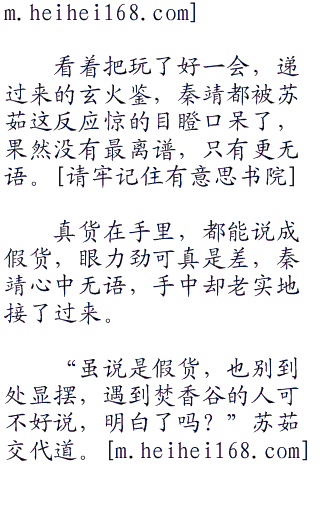 m.heihei168.com]
看着把玩了好一会，递
过来的玄火鉴，秦靖都被苏
茹这反应惊的目瞪口呆了，
果然没有最离谱，只有更无
语。[请牢记住有意思书院]
真货在手里，都能说成
假货，眼力劲可真是差，秦
靖心中无语，手中却老实地
接了过来。
“虽说是假货，也别到
处显摆，遇到焚香谷的人可
不好说，明白了吗？”苏茹
交代道。[m.heihei168.com]